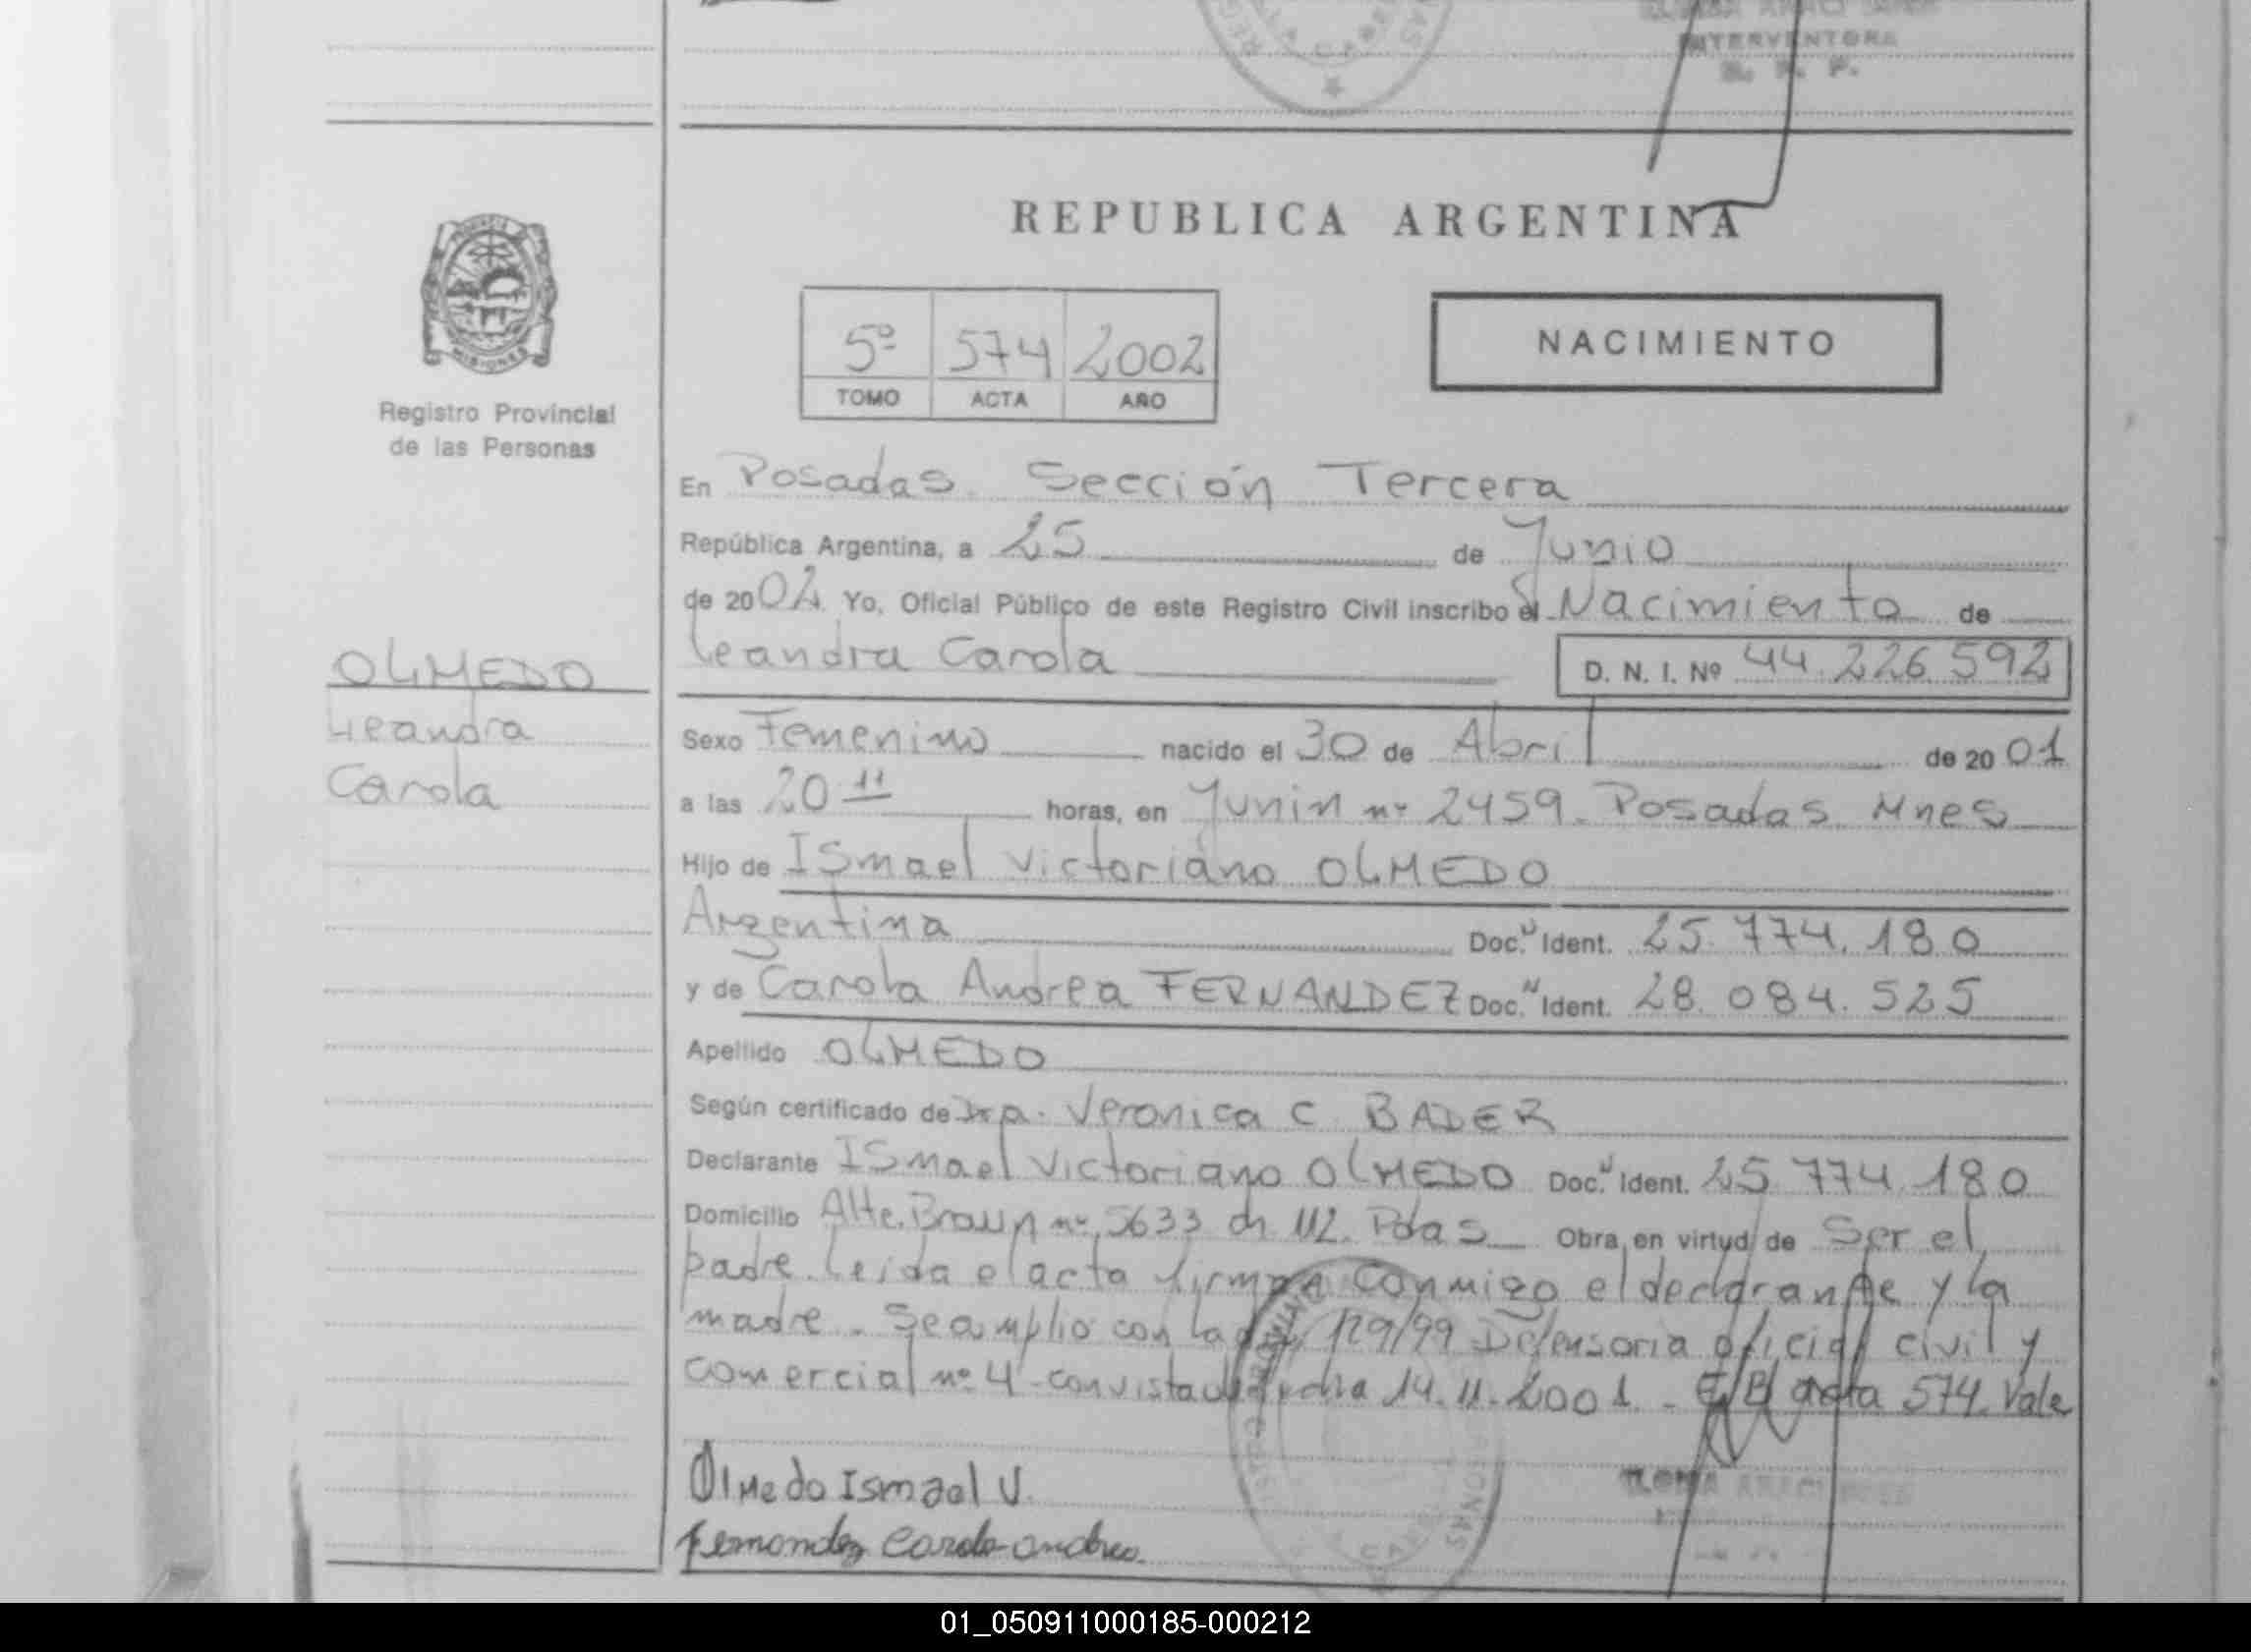 INTERVENTORA
R. P. P.
REPUBLICA ARGENTINA
MISIONES
Registro Provincial
de las Personas
5º 574 2002
TOMO ACTA AÑO
NACIMIENTO
En Posadas Sección Tercera
República Argentina, a 25 de Junio
de 2002 Yo, Oficial Público de este Registro Civil inscribo el Nacimiento de
Leandra Carola D. N. I. Nº 44.226.592
OLMEDO
Leandra
Carola
Sexo Femenino nacido el 30 de Abril de 2001
a las 20 11 horas, en Junin nº 2459. Posadas Mnes
Hijo de Ismael Victoriano OLMEDO
Argentina Doc. N Ident. 25.774.180
y de Carola Andrea FERNANDEZ Doc. N Ident. 28.084.525
Apellido OLMEDO
Según certificado de Dra. Veronica C. BADER
Declarante Ismael Victoriano OLMEDO Doc. N Ident. 25.774.180
Domicilio Alte. Brown nº 5633 ch 112. Pdas Obra en virtud de Ser el
padre. Leida el acta firman conmigo el declarante y la
madre. Se amplio con la 129/99 Defensoria oficial civil y
comercial nº 4 con vista de fecha 14.11.2001. - E/B acta 574. Vale
Olmedo Ismael V.
Fernandez Carola andrea.
01_050911000185-000212